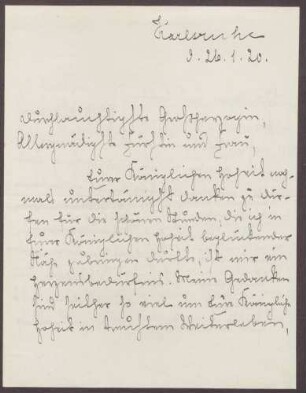 Karlsruhe
d. 26.1.20.
Durchlauchtigste Großherzogin,
Allergnädigste Fürstin und Frau,
Eurer Königlichen Hoheit noch-
mals unterthänigst danken zu dür-
fen für die schönen Stunden, die ich in
Eurer Königlichen Hoheit beglückender
Nähe zubringen durfte, ist mir ein
Herzensbedürfnis. Meine Gedanken
sind seither so viel um Eure Königliche
Hoheit in treuestem Weiterleben,